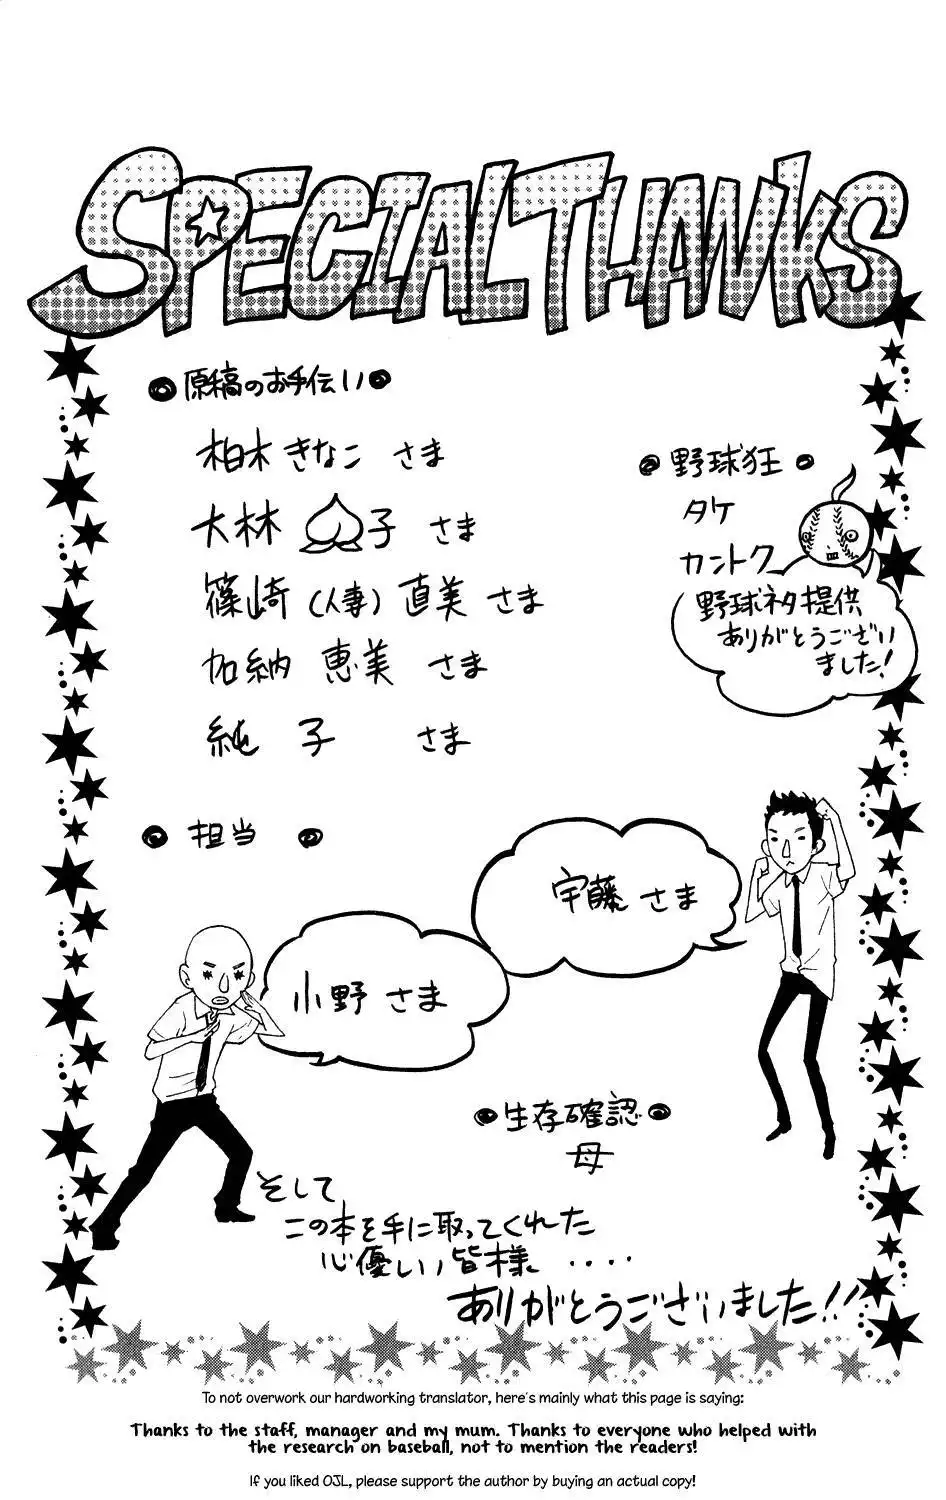 SPECIAL THANKS
原稿のお手伝い
柏木きなこ さま
大林 子 さま
篠崎(人妻)直美 さま
加納 恵美 さま
純子 さま
野球狂
タケ
カントク
野球ネタ提供
ありがとうござい
ました!
担当
宇藤さま
小野さま
生存確認
母
そして
この本を手に取ってくれた
心優しい皆様 ‥‥
ありがとうございました!!
To not overwork our hardworking translator, here's mainly what this page is saying:
Thanks to the staff, manager and my mum. Thanks to everyone who helped with
the research on baseball, not to mention the readers!
If you liked OJL, please support the author by buying an actual copy!